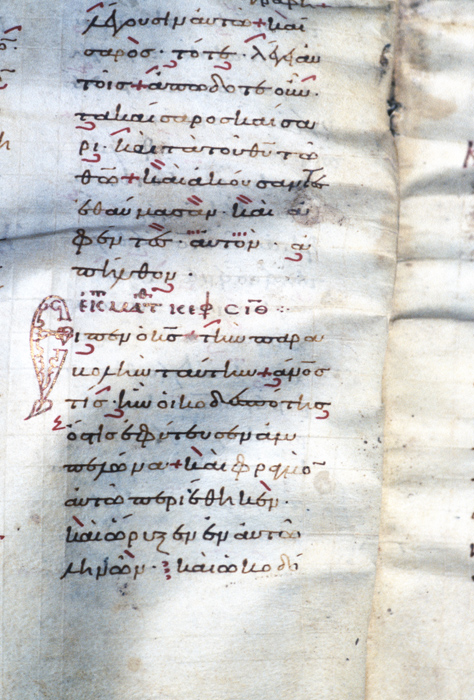 λέγουσιν αὐτῶ + καί
σαρος · τότε λέγει αὐ
τοῖς + ἀπόδοτε οὖν
τὰ καίσαρος καίσα
ρι · καὶ τὰ τοῦ θυ τῶ
θω + καὶ ἀκούσαντες
ἐθαύμασαν · καὶ ἀ
φέντες αὐτὸν · ἀ
πῆλθον ·
Εἶπεν ὁ κς + τὴν παρα
βολὴν ταύτην + ανός
τίς ἦν οἰκοδεσπότης
ὅστις ἐφύτευσεν ἀμ
πελῶνα + καὶ φραγμὸ
αὐτῶ περιέθηκεν ·
καὶ ὤρυξεν ἐν αὐτῶ
ληνὸν · καὶ ὠκοδό